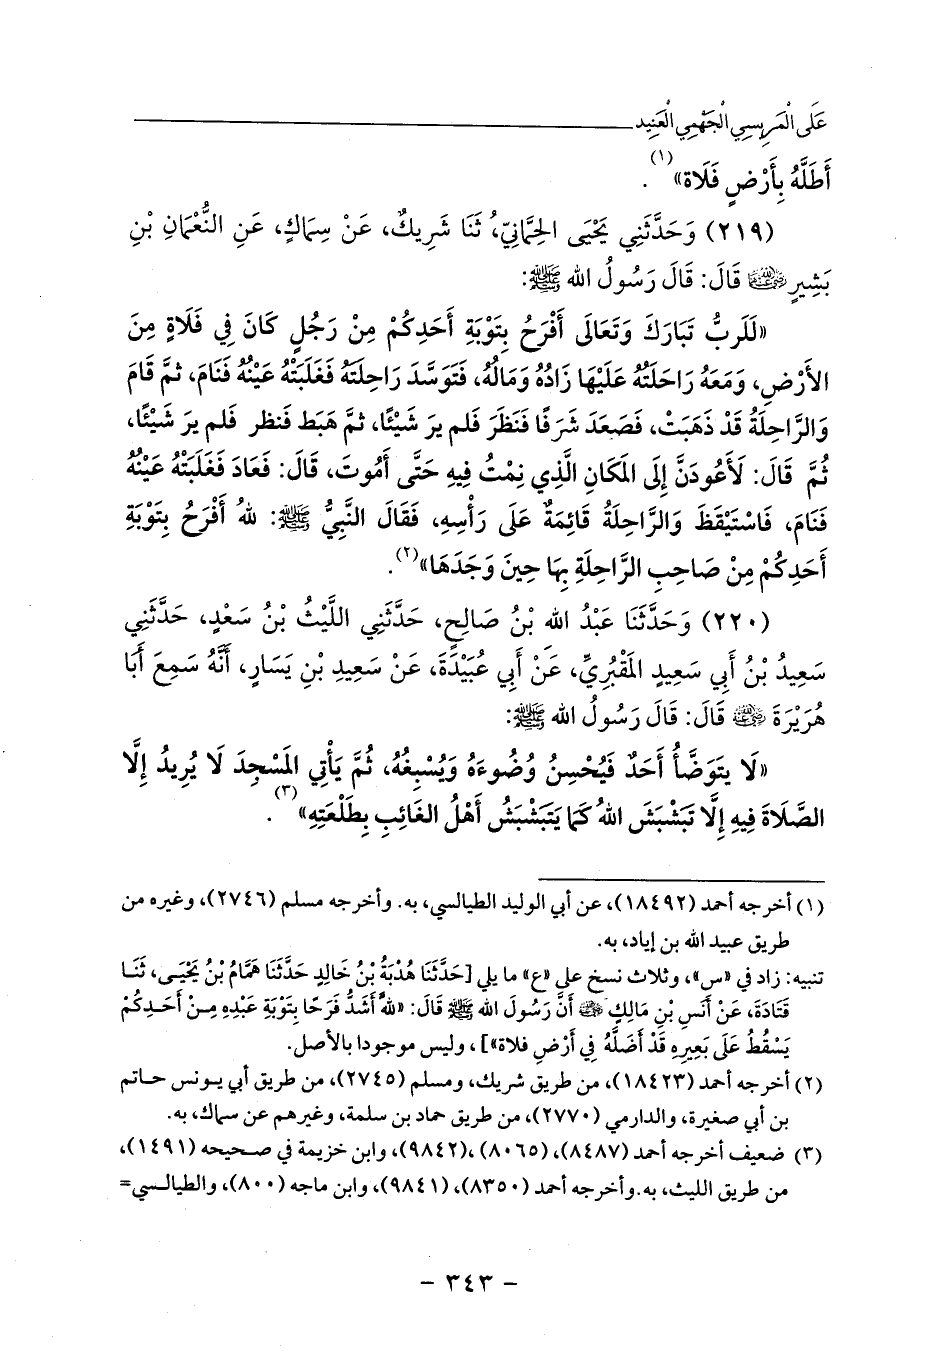 عَلَى الْمَرِيسِي الْجَهْمِي الْعَنِيد
أَطَلَّهُ بِأَرْضِ فَلَاة»(١).
(٢١٩) وَحَدَّثَنِي يَحْيَى الحِمَّانِيّ، ثَنَا شَرِيكٌ، عَنْ سِمَاكٍ، عَنِ النُّعْمَانِ بْنِ
بَشِيرٍ ﷺ قَالَ: قَالَ رَسُولُ الله ﷺ:
«لَلرَبُّ تَبَارَكَ وَتَعَالَى أَفْرَحُ بِتَوْبَةِ أَحَدِكُمْ مِنْ رَجُلٍ كَانَ فِي فَلَاةٍ مِنَ
الأَرْضِ، وَمَعَهُ رَاحَلَتُهُ عَلَيْهَا زَادُهُ وَمَالُهُ، فَتَوَسَّدَ رَاحِلَتَهُ فَغَلَبَتْهُ عَيْنُهُ فَنَامَ، ثمَّ قَامَ
وَالرَّاحِلَةُ قَدْ ذَهَبَتْ، فَصَعَدَ شَرَفًا فَنَظَرَ فَلم يرَ شَيْئًا، ثمَّ هَبَط فَنظر فَلم يرَ شَيْئًا،
ثُمَّ قَالَ: لَأَعُودَنَّ إِلَى المَكَانِ الَّذِي نِمْتُ فِيهِ حَتَّى أَمُوتَ، قَالَ: فَعَادَ فَغَلَبَتْهُ عَيْنُهُ
فَنَامَ، فَاسْتَيْقَظَ وَالرَّاحِلَةُ قَائِمَةٌ عَلَى رَأْسِهِ، فَقَالَ النَّبِيُّ ﷺ: للهُ أَفْرَحُ بِتَوْبَةِ
أَحَدِكُمْ مِنْ صَاحِبِ الرَّاحِلَةِ بِهَا حِينَ وَجَدَهَا»(٢).
(٢٢٠) وَحَدَّثَنَا عَبْدُ الله بْنُ صَالِحٍ، حَدَّثَنِي اللَّيْثُ بْنُ سَعْدٍ، حَدَّثَنِي
سَعِيدُ بْنُ أَبِي سَعِيدٍ المَقْبُرِيُّ، عَنْ أَبِي عُبَيْدَةَ، عَنْ سَعِيدِ بْنِ يَسَارٍ، أَنَّهُ سَمِعَ أَبَا
هُرَيْرَةَ ﵁ قَالَ: قَالَ رَسُولُ الله ﷺ:
«لَا يتَوَضَّأُ أَحَدٌ فَيُحْسِنُ وُضُوءَهُ وَيُسْبِغُهُ، ثُمَّ يَأْتِي المَسْجِدَ لَا يُرِيدُ إِلَّا
الصَّلَاةَ فِيهِ إِلَّا تَبَشْبَشَ اللهُ كَمَا يَتَبَشْبَشُ أَهْلُ الغَائِبِ بِطَلْعَتِهِ»(٣).
(١) أخرجه أحمد (١٨٤٩٢)، عن أبي الوليد الطيالسي، به. وأخرجه مسلم (٢٧٤٦)، وغيره من
طريق عبيد الله بن إياد، به.
تنبيه: زاد في «س»، وثلاث نسخ على «ع» ما يلي [حَدَّثَنَا هُدْبَةُ بْنُ خَالِدٍ حَدَّثَنَا هَمَّامُ بْنُ يَحْيَى، ثَنَا
قَتَادَةَ، عَنْ أَنَسِ بْنِ مَالِكٍ ﵁ أَنَّ رَسُولَ الله ﷺ قَالَ: «للهُ أَشَدُّ فَرَحًا بِتَوْبَةِ عَبْدِهِ مِنْ أَحَدِكُمْ
يَسْقُطُ عَلَى بَعِيرِهِ قَدْ أَضَلَّهُ فِي أَرْضِ فلاة»]، وليس موجودا بالأصل.
(٢) أخرجه أحمد (١٨٤٢٣)، من طريق شريك، ومسلم (٢٧٤٥)، من طريق أبي يونس حاتم
بن أبي صغيرة، والدارمي (٢٧٧٠)، من طريق حماد بن سلمة، وغيرهم عن سماك، به.
(٣) ضعيف أخرجه أحمد (٨٤٨٧)، (٨٠٦٥)، (٩٨٤٢)، وابن خزيمة في صحيحه (١٤٩١)،
من طريق الليث، به. وأخرجه أحمد (٨٣٥٠)، (٩٨٤١)، وابن ماجه (٨٠٠)، والطيالسي=
- ٣٤٣ -